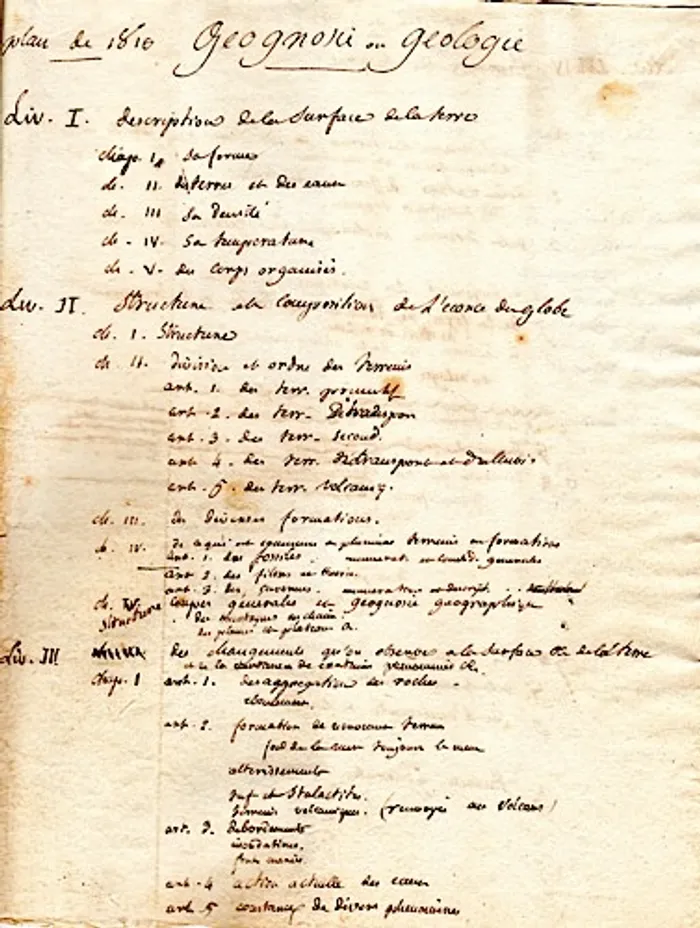 plan de 1810 Geognosie ou geologie
Liv. I. description de la surface de la terre
chap. I. Sa forme
ch. II. des terres et des eaux
ch. III Sa densité
ch. IV. Sa temperature
ch. V. des corps organisés.
Liv. II. Structure et la composition de l'ecorce du globe
ch. I. Structure
ch. II. division et ordre des terreins
art. 1. des terr. primitifs
art. 2. des terr. De transition
art. 3. des terr. Second.
art. 4. des terr. De transport et d'alluvi.
art. 5. des terr. volcaniq.
ch. III. des diverses formations.
ch. IV. de ce qui est commun a plusieurs terreins ou formations
art. 1. des fossiles. enumerat. generales
art 2. des filons
art. 3. des cavernes. enumeration et descript.
ch. IV Coupes generales et geognosie geographique
Structure des montagnes en chaine.
des plaines et plateaux
Liv. III des changements qu'on observe a la surface de la terre
chap. I art. 1. desaggregation des roches.
eboulements.
art. 2. formation de nouveaux terrein
fond de la mer
atterissements
tuf et Stalactites.
terreins volcaniques. (renvoyés aux volcans)
art. 3. debordements
inondations.
art. 4 action actuelle des eaux
art. 5 constance de divers phenomènes